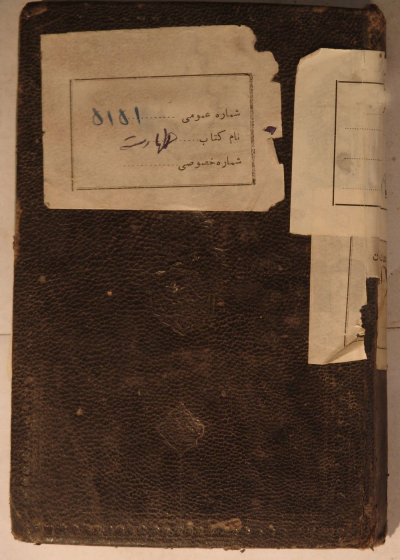 شماره عمومی ........ ۵۱۵۱
نام کتاب .... طهارت
شماره خصوصی ........